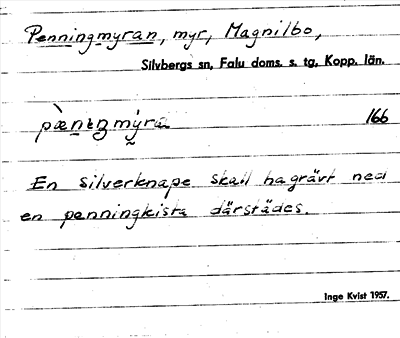 Penningmyran, myr, Magnilbo,
Silvbergs sn, Falu doms. s. tg, Kopp. län.
166
En silverknape skall ha grävt ned
en penningkista därstädes.
Inge Kvist 1957.